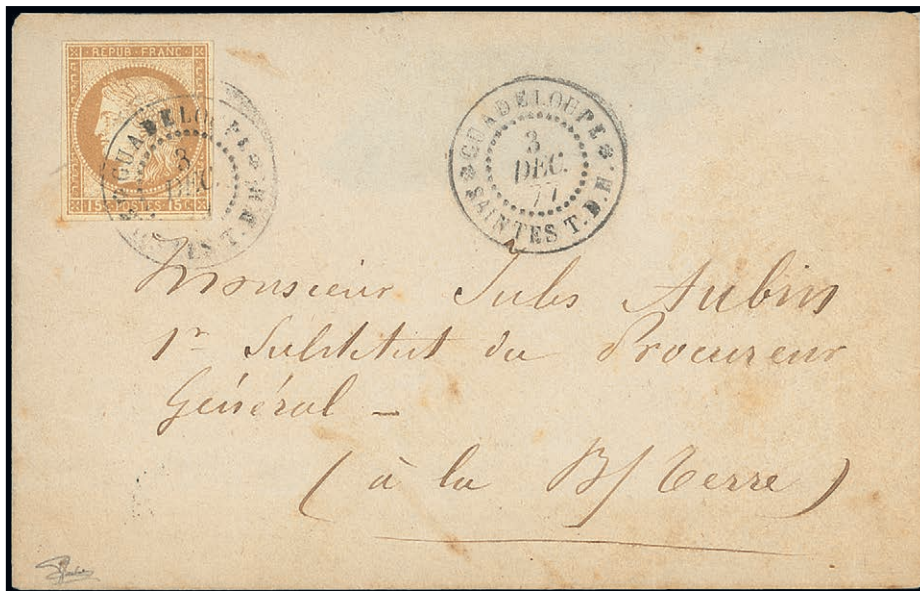 REPUB·FRANC·
15c·POSTES·15c
GUADELOUPE
3
DEC.
SAINTES T.D.H.
GUADELOUPE
3
DEC.
77
SAINTES T.D.H.
Monsieur Jules Aubin
1r Substitut du Procureur
Général —
(à la B/Terre)